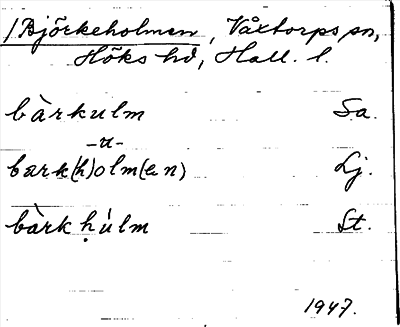 /Björkeholmen, Våxtorps sn,
Höks hd, Hall. l.
bàrkulm Sa.
-u-
bark(h)olm(en) Lj.
bàrk ḥúlm St.
1947.